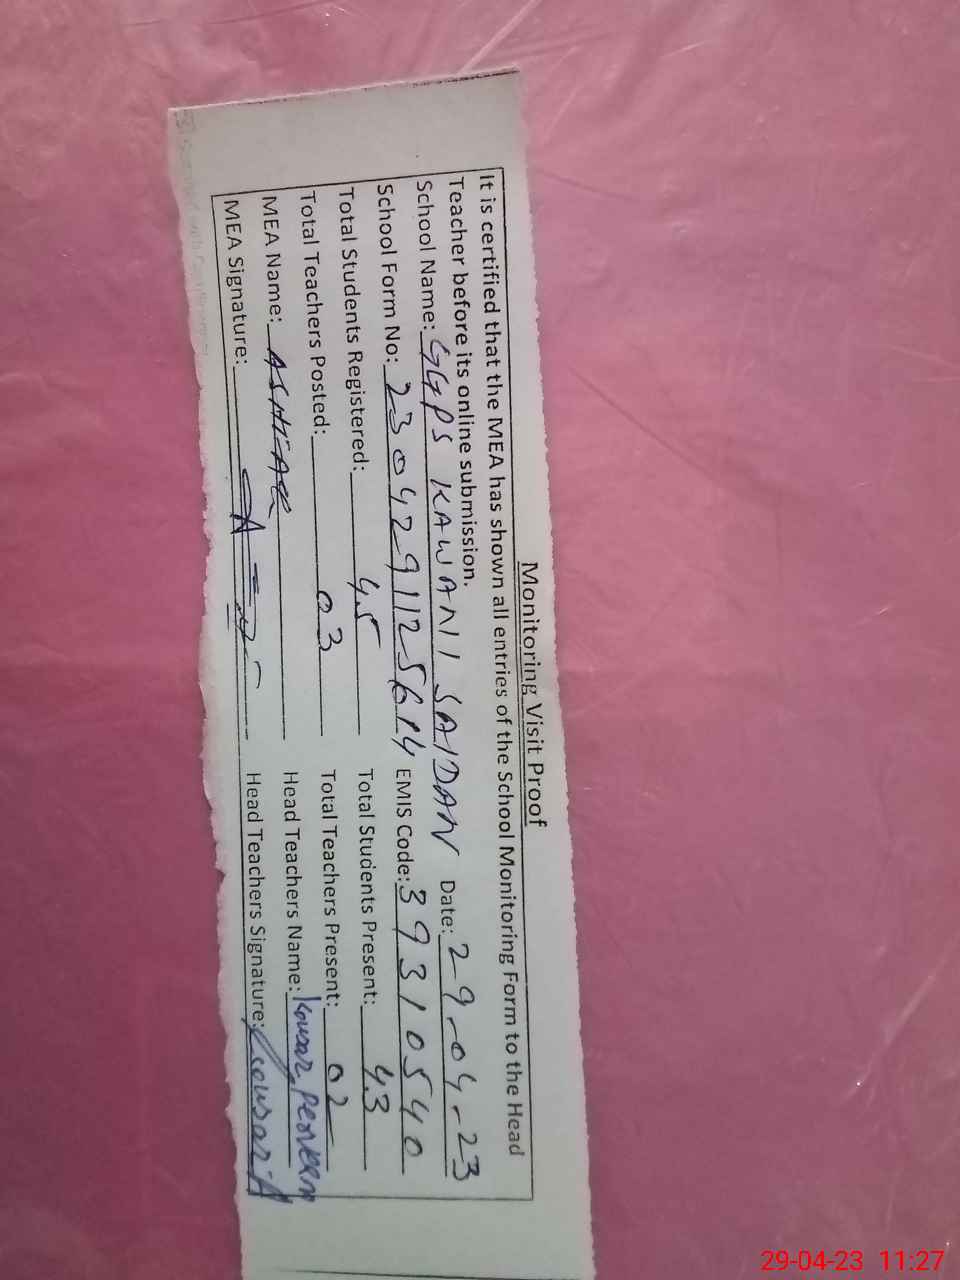 Monitoring Visit Proof
It is certified that the MEA has shown all entries of the School Monitoring Form to the Head
Teacher before its online submission.
School Name: GGPS KAWANII SAIDAN Date: 29-04-23
School Form No: 2304291125614 EMIS Code: 39310540
Total Students Registered: 45 Total Students Present: 43
Total Teachers Posted: 03 Total Teachers Present: 02
MEA Name: ASHFAQ Head Teachers Name: Kousar Perveen
MEA Signature: Head Teachers Signature: Kousar
29-04-23 11:27